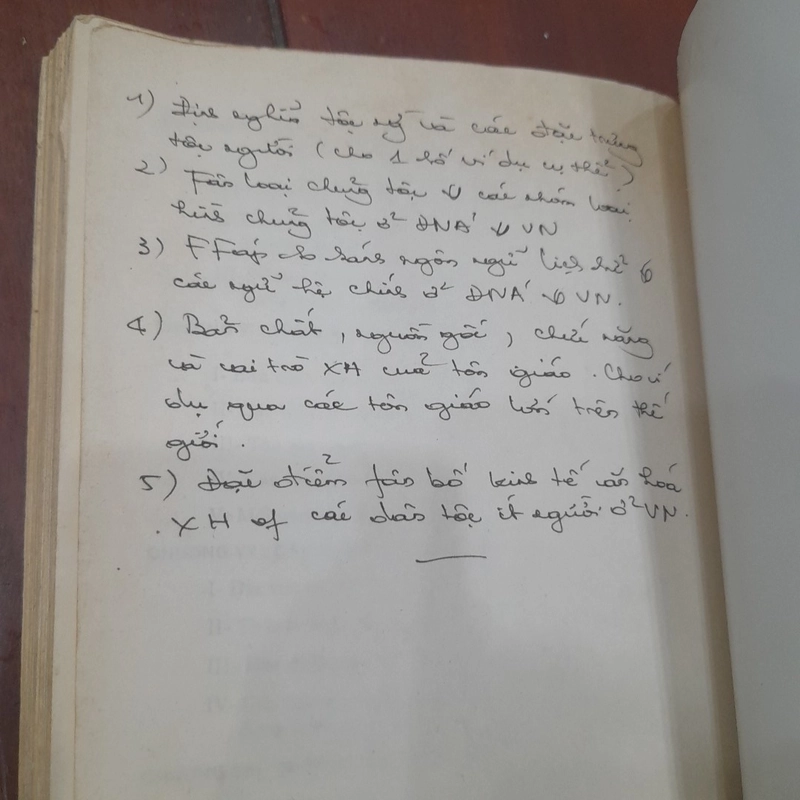 1) Định nghĩa tộc ng` và các đặc trưng
tộc người (cho 1 số ví dụ cụ thể)
2) Fân loại chủng tộc & các nhóm loại
hình chủng tộc ở ĐNÁ & VN
3) F Fáp so sánh ngôn ngữ lịch sử &
các ngữ hệ chính ở ĐNÁ & VN.
4) Bản chất, nguồn gốc, chức năng
và vai trò XH của tôn giáo. Cho ví
dụ qua các tôn giáo lớn trên thế
giới.
5) Đặc điểm fân bố kinh tế văn hoá
XH of các dân tộc ít người ở VN.